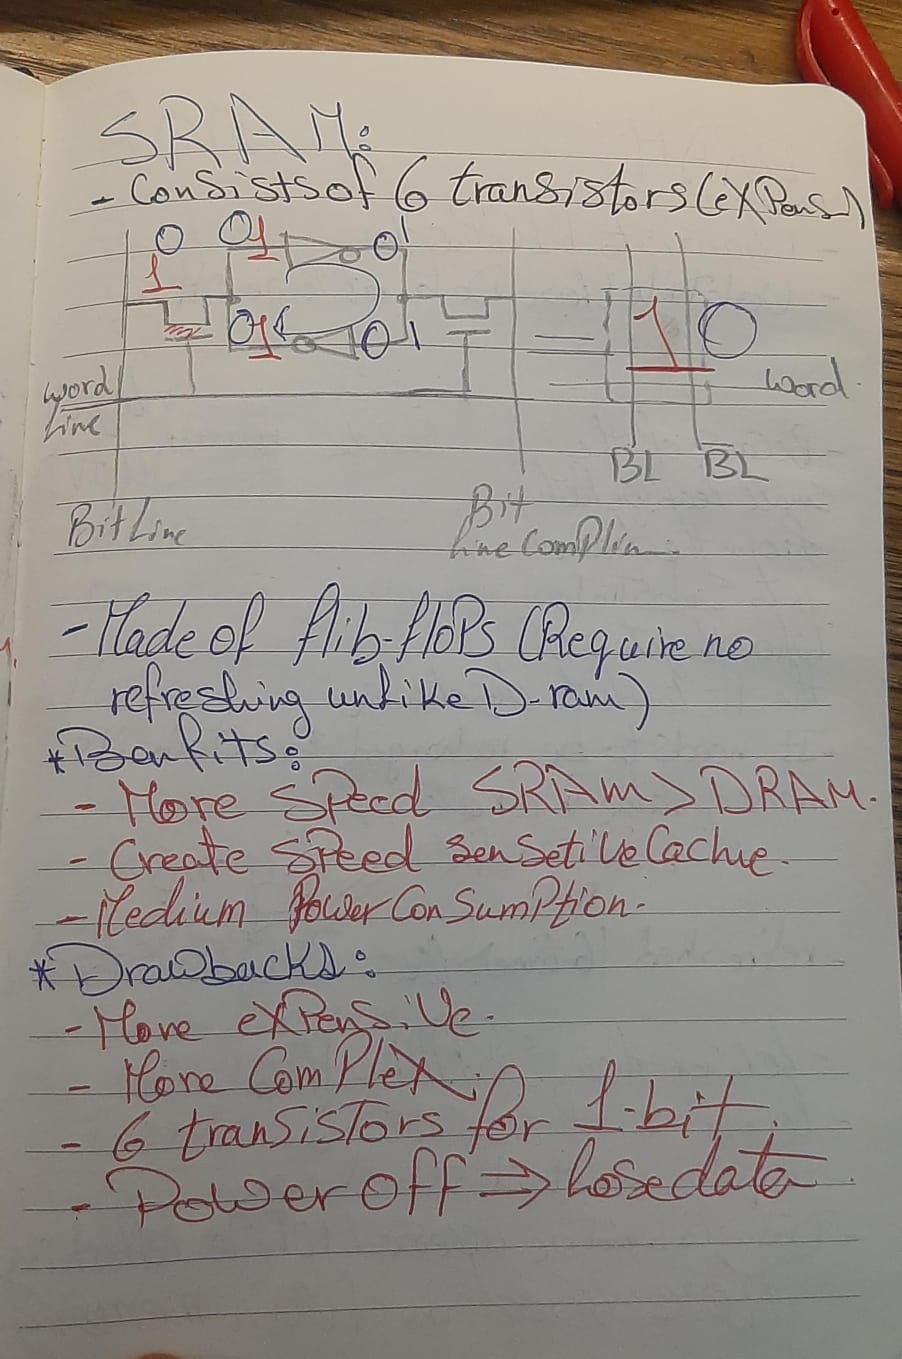 SRAM:
- Consists of 6 transistors (expens)
0 01 0 1
1
01 0 1 1 0
word
Line
word
BL BL
Bit Line
Bit
Line Complem.
- Made of flib-flops (Require no
refreshing unlike D-ram)
* Benfits:
- More Speed SRAM > DRAM.
- Create Speed Sensetive Cache.
- Medium Power Consumption.
* Drawbacks:
- More expensive.
- More Complex.
- 6 transistors for 1-bit.
- Power off ⇒ Lose data